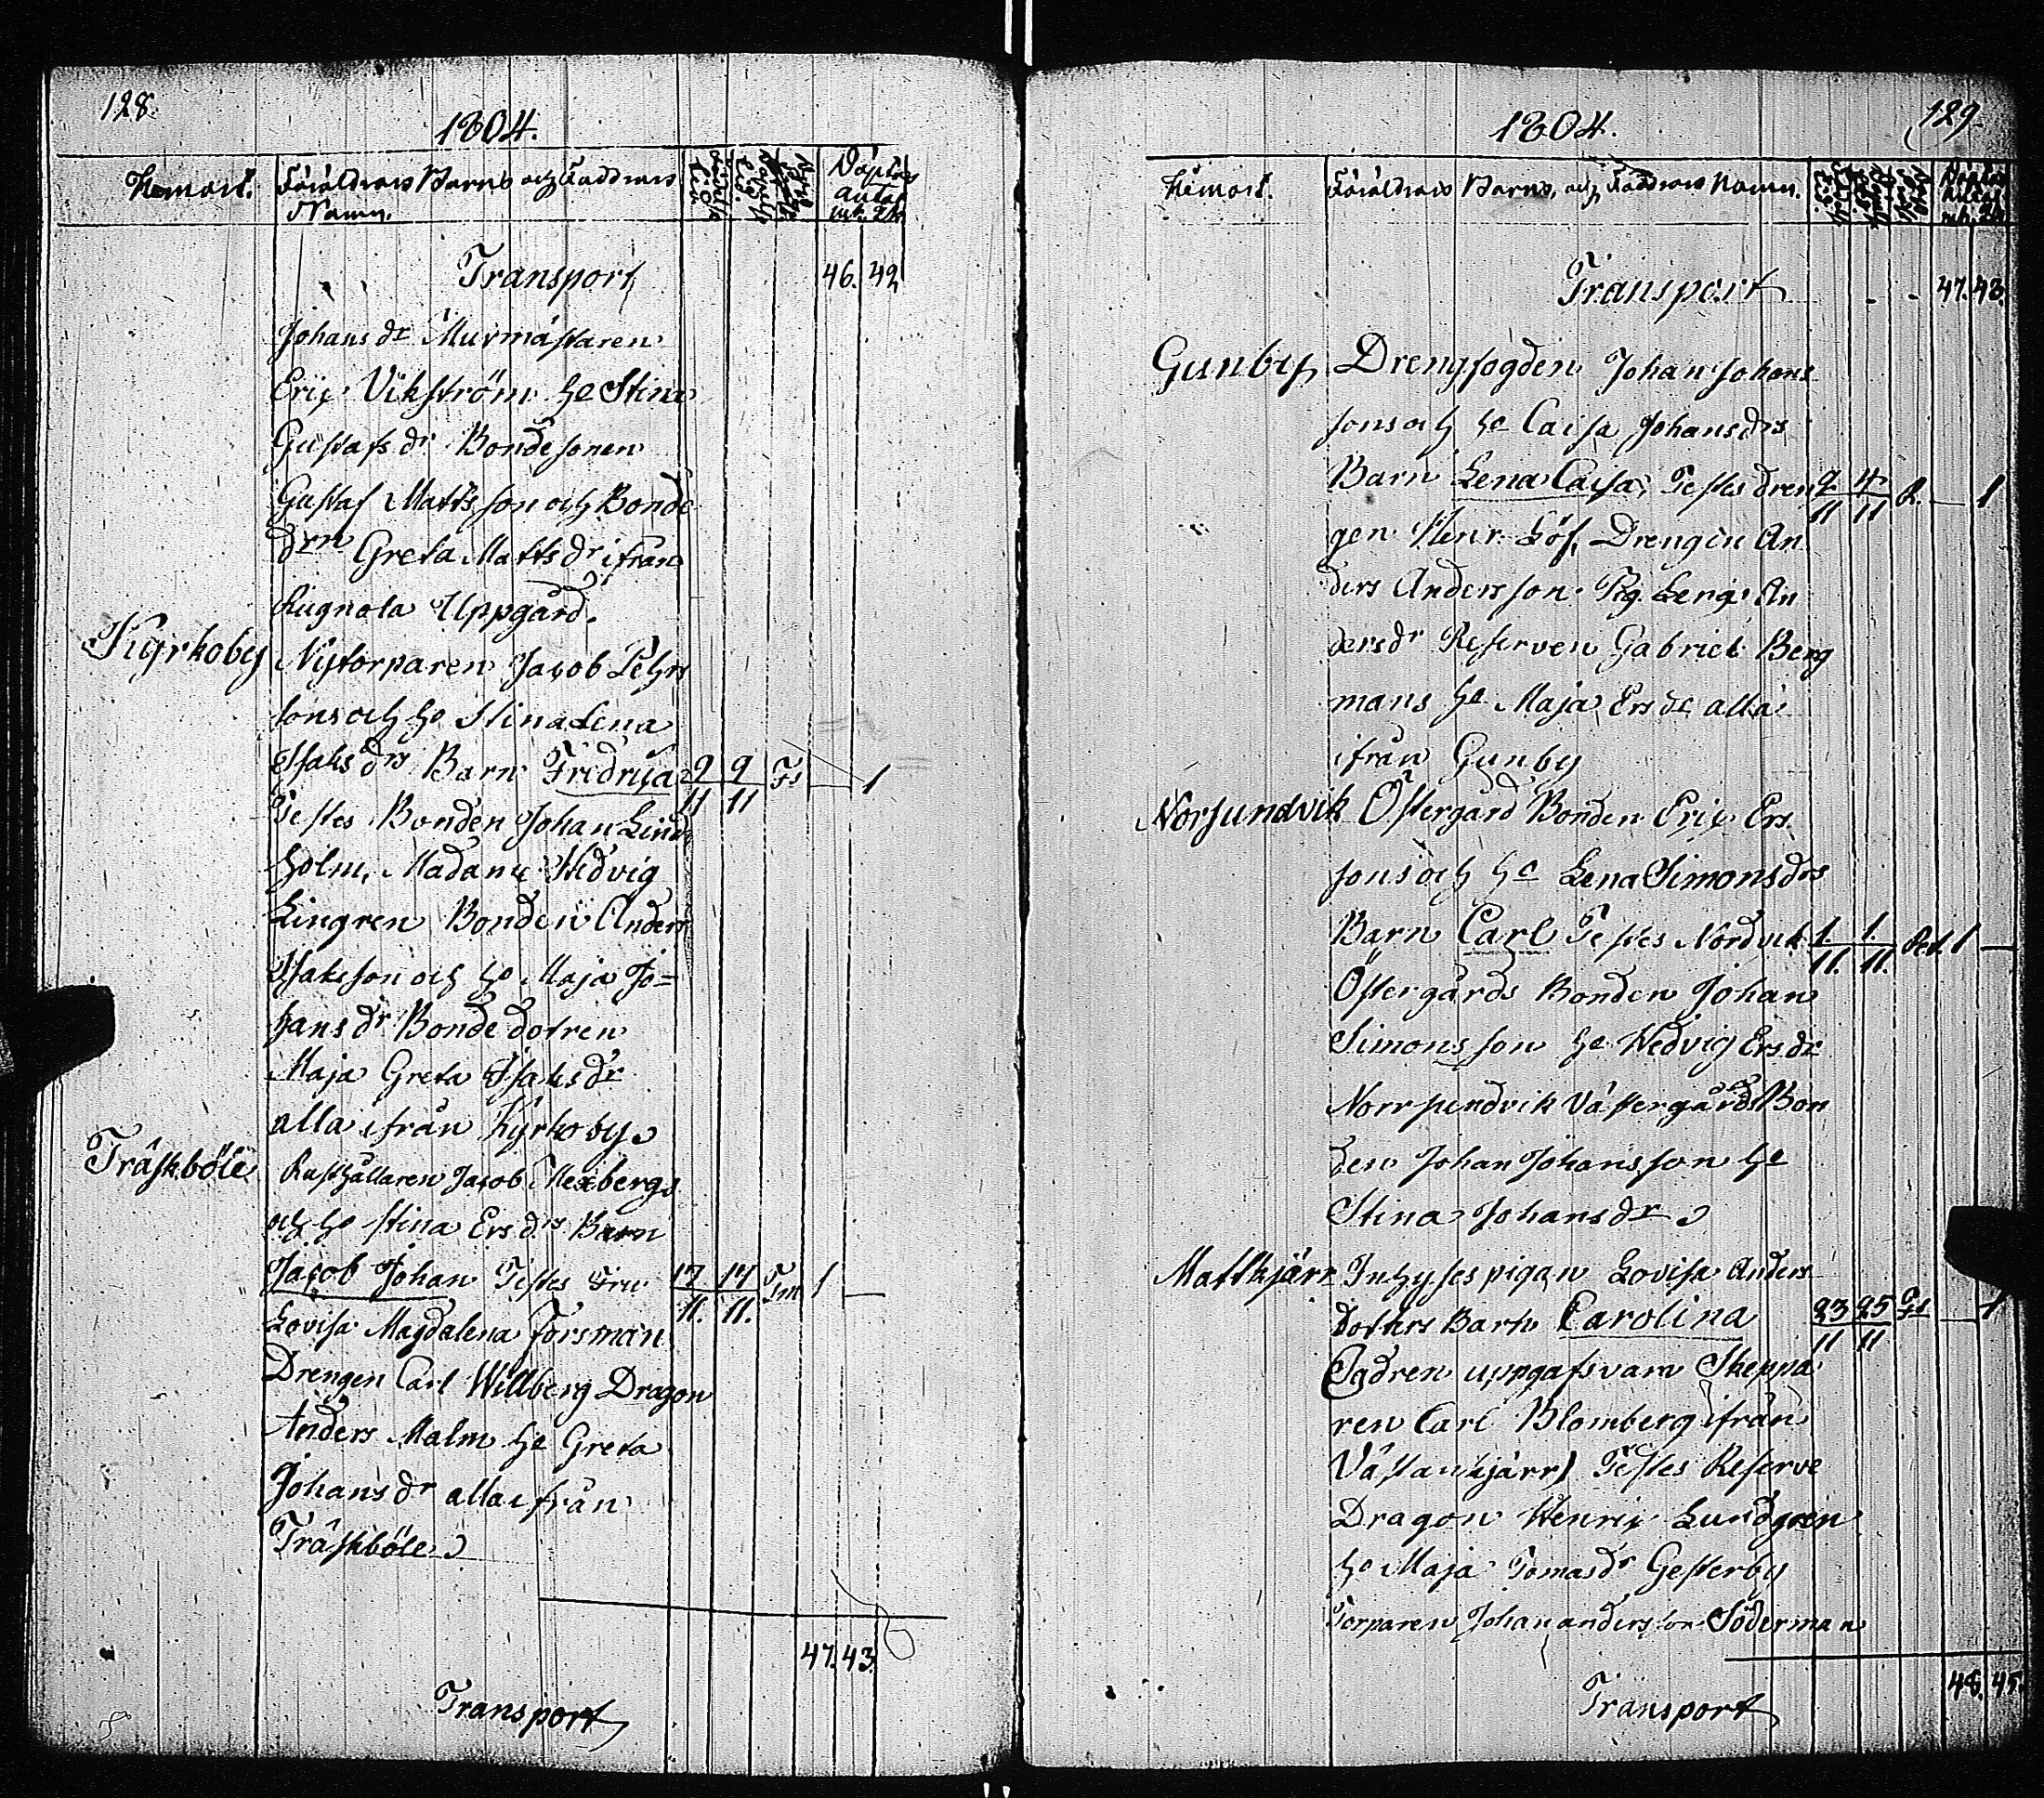 128.
1804.
Hemort. Föräldrars Barns och Faddrars
Namn.
Döptas
antal
mk. qk.
Transport 46. 42
Johans dr Murmästaren
Eric Vikström he Stina
Gustafs dr Bondesonen
Gustaf Matts son och Bonde
drn Greta Matts dr ifrån
Rugnola Uppgård.
Kyrkoby Nytorparen Jacob Pehrs
sons och ho Stina Lena
Isaks drs Barn Fridrica 9/11 9/11 Fs — 1
Testes Bonden Johan Lind
holm, Madame Hedvig
Lingren Bonden Anders
Isaksson och ho Maja Jo-
hans dr Bonde dotren
Maja Greta Isaks dr
alla ifrån Kyrkoby
Träskböle Rusthållaren Jacob Mexbergs
och ho Stina Ers drs Barn
Jacob Johan Testes Fru 17/11. 17/11. Fm 1 —
Lovisa Magdalena Forsman
Drengen Carl Willberg Dragon
Anders Malm he Greta
Johans dr alla ifrån
Träskböle
47. 43.
Transport
129
1804.
Hemort. Föräldrars Barns, och Faddrars Namn.
Transport - - 47. 43.
Gunby Drengfogden Johan Johans
sons och he Caisa Johans drs
Barn Lena Caisa, Testes dren 2/11 4/11 R. — 1
gen Henr. Löf, Drengen An
ders Andersson. Pig. Lena An
dersdr Reserven Gabriel Berg
mans he Maja Ers dr alla
ifrån Gunby
Norsundvik Östergård Bonden Eric Ers
sons och he Lena Simonsdrs
Barn Carl Testes Nordvik 1/11. 1/11. Red. 1 —
Östergårds Bonden Johan
Simons son he Hedvig Ersdr
Norrsundvik Västergårds Bon
den Johan Johansson he
Stina Johansdr
Mattkjärr Inhyses pigan Lovisa Anders
dotters Barn Carolina 23/11 25/11 — 1
(Fadren uppgafs vara Skeppa
ren Carl Blomberg ifrån
Västankjärr) Testes Reserve
Dragon Henric Lundgren
ho Maja Tomasdr Gesterby
Torparen Johan anders son Söderman
48. 45.
Transport